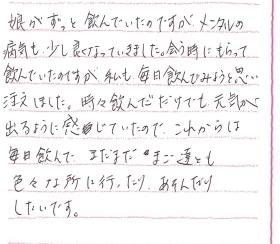 娘がずっと飲んでいたのですが、メンタルの
病気も少し良くなっていきました。会う時にもらって
飲んでいたのですが、私も、毎日飲んでみようと思い
注文しました。時々飲んだだけでも、元気が
出るように感じていたので、これからは
毎日飲んで、まだまだまご達とも
色々な所に行ったり、あそんだり
したいです。